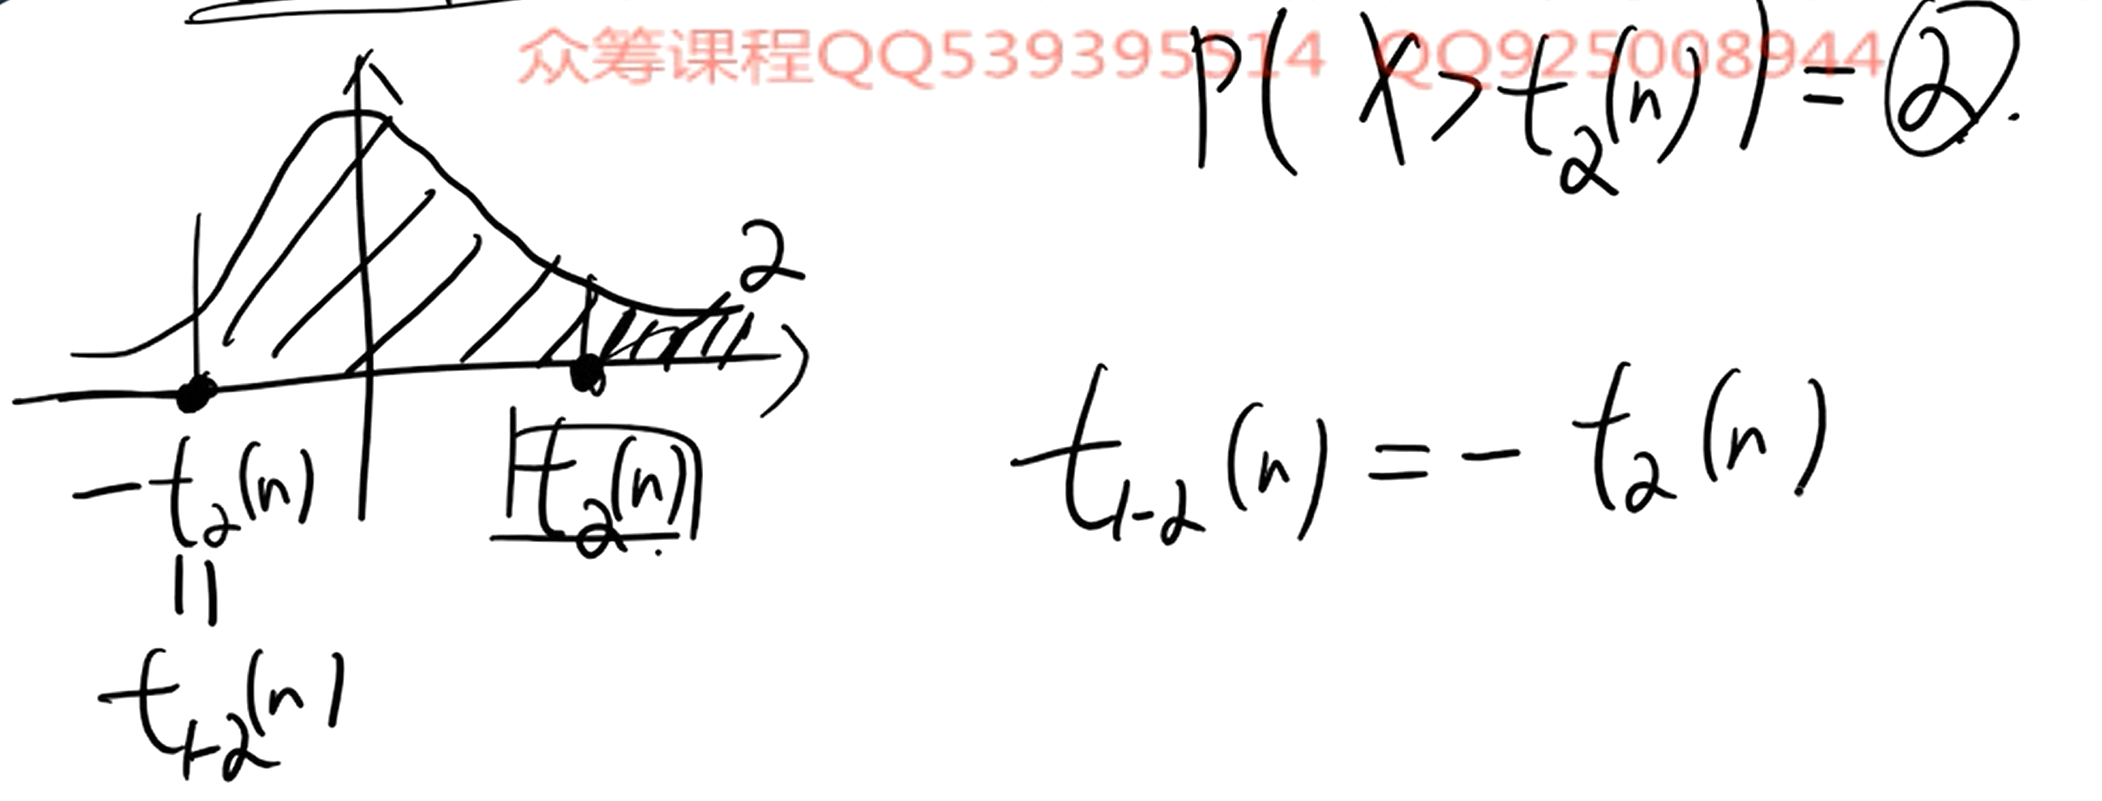 众筹课程QQ539395514 QQ925008944
P( X > t₂(n) ) = ②.
2
-t₂(n)
t₂(n)
t₁₋₂(n) = - t₂(n)
||
t₁₋₂(n)